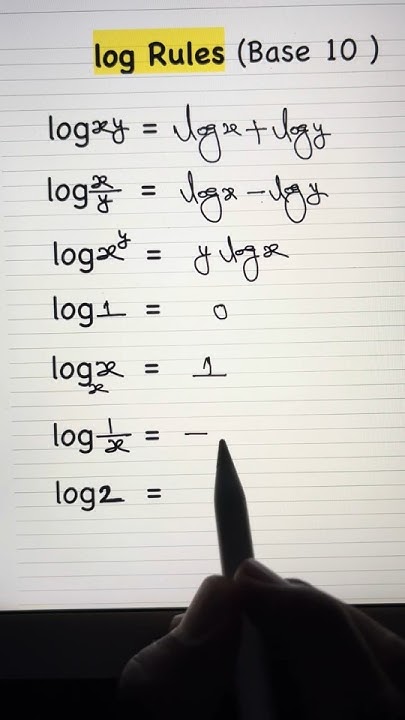 log Rules (Base 10 )
logxy = logx + logy
log x/y = logx - logy
logx^y = y logx
log1 = 0
logₓx = 1
log 1/x = -
log2 =